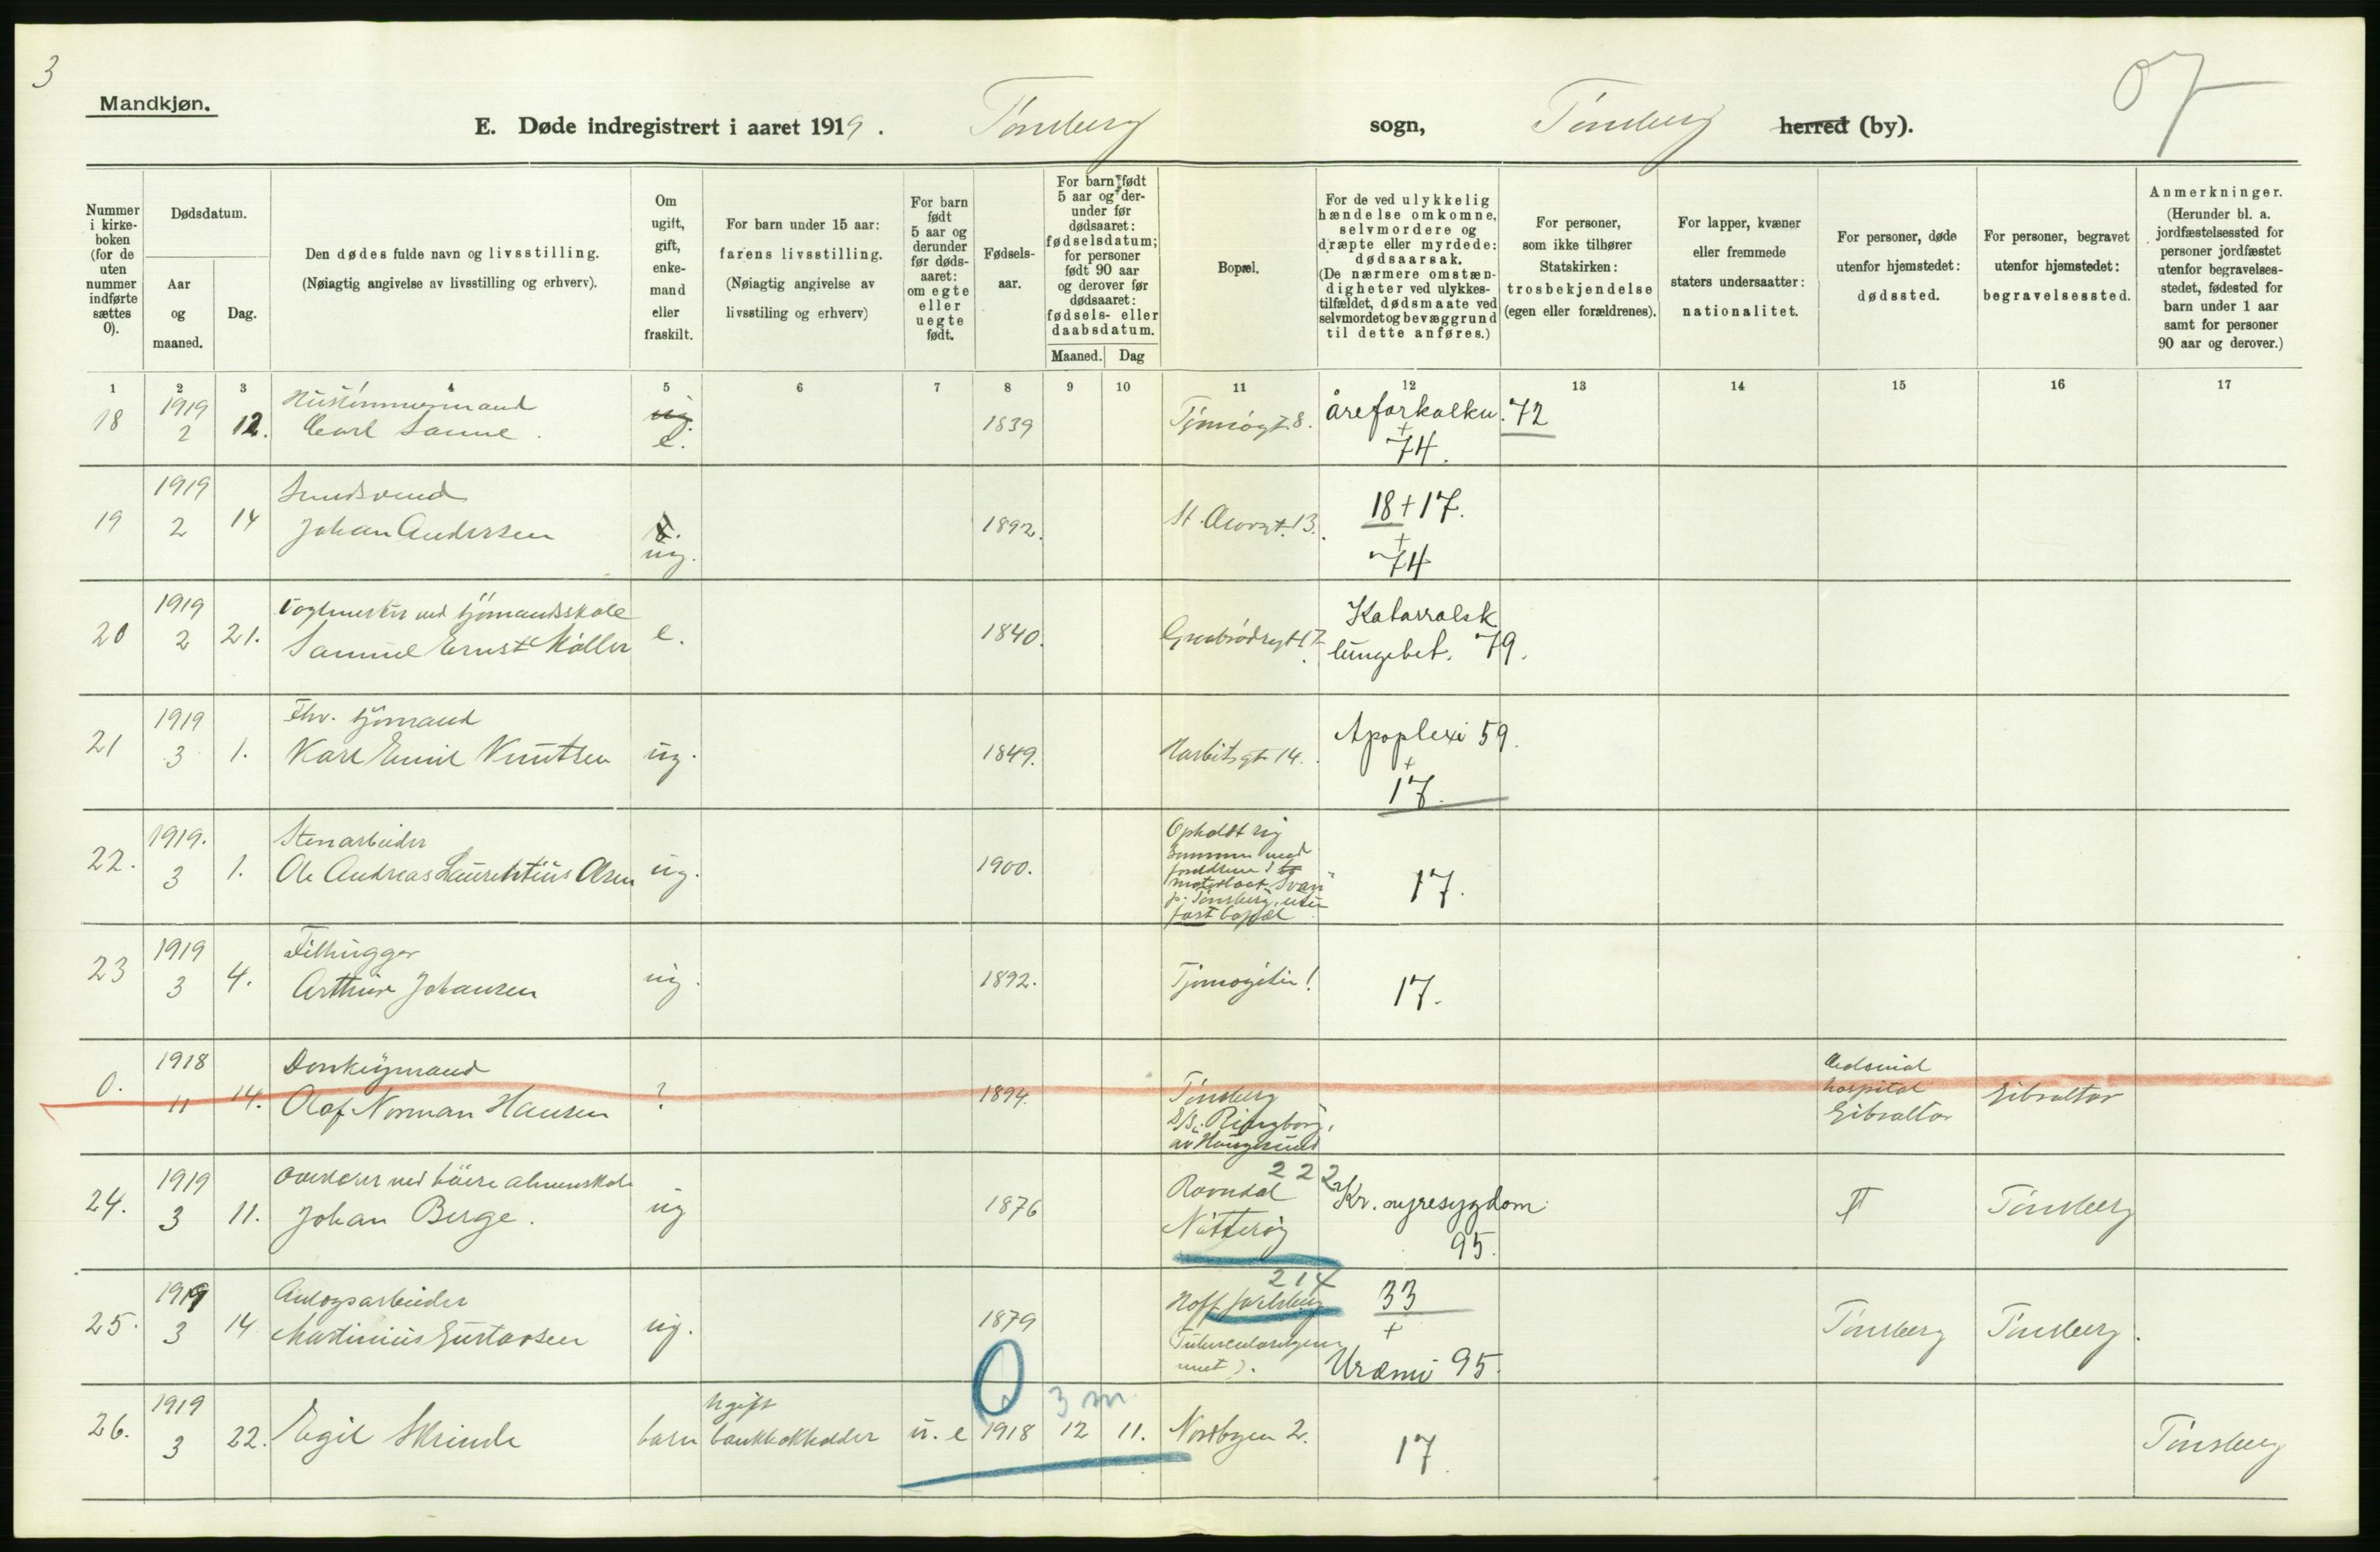 3
Mandkjøn.
E. Døde indregistrert i aaret 1919. Tønsberg sogn, Tønsberg herred (by).
07
Nummer i kirke-boken (for de uten nummer indførte sættes 0).
Dødsdatum.
Aar og maaned.
Dag.
Den dødes fulde navn og livsstilling.
(Nøiagtig angivelse av livsstilling og erhverv).
Om ugift, gift, enke-mand eller fraskilt.
For barn under 15 aar:
farens livsstilling.
(Nøiagtig angivelse av
livsstiling og erhverv)
For barn født 5 aar og derunder før døds-aaret: om egte eller uegte født.
Fødsels-aar.
For barn født 5 aar og der-under før dødsaaret: fødselsdatum; for personer født 90 aar og derover før dødsaaret: fødsels- eller daabsdatum.
Maaned. Dag
Bopæl.
For de ved ulykkelig hændelse omkomne, selvmordere og dræpte eller myrdede: dødsaarsak.
(De nærmere omstæn-digheter ved ulykkes-tilfældet, dødsmaate ved selvmordet og bevæggrund til dette anføres.)
For personer, som ikke tilhører Statskirken: trosbekjendelse (egen eller forældrenes).
For lapper, kvæner eller fremmede staters undersaatter: nationalitet.
For personer, døde utenfor hjemstedet: dødssted.
For personer, begravet utenfor hjemstedet: begravelsessted.
Anmerkninger.
(Herunder bl. a. jordfæstelsessted for personer jordfæstet utenfor begravelses-stedet, fødested for barn under 1 aar samt for personer 90 aar og derover.)
1 2 3 4 5 6 7 8 9 10 11 12 13 14 15 16 17
18 1919 2 12. Hustømmermand
Carl Sanne. ug. e. 1839 Tjømøgt. 8. åreforkalkn. 72
+
74.
19 1919 2 14
Johan Andersen ug. 1892. 13. 18 + 17.
+
74
20 1919 2 21. ved sjømandsskole
Samuel Ernst Møller e. 1840. Katarralsk
lungebet. 79.
21 1919 3 1. Fhv. sjømand
Karl Emil Knutsen ug. 1849. 14. Apoplexi 59.
+
17.
22. 1919. 3 1. Stenarbeider
Ole Andreas Laurentius Olsen ug. 1900. Opholdt sig
sammen med
forældrene i
motorbaat "Svan"
p. Tønsberg, uten
fast bopæl
17.
23 1919 3 4. Filhugger
Arthur Johansen ug. 1892. 17.
0. 1918 11 14. Donkeymand
Olaf Norman Hansen ? 1894. Tønsberg
S/S. Ringborg,
av Haugesund
Colonial
hospital
Gibraltar
Gibraltar
24. 1919 3 11. Overlærer ved høiere almenskole
Johan Berge. ug 1876 222
Ravndal
Nøtterøy
Kr. nyresygdom
95.
Tønsberg
25. 1919 3 14 Anlægsarbeider
Martinius Gustavsen ug. 1879 214
Jarlsberg
33
+
Uræmi 95.
Tønsberg Tønsberg.
26. 1919 3 22. Egil Skrinde barn ugift
bankbokholder u. e 1918 12 11. Nordbyen 2. 17 Tønsberg
0 3 m